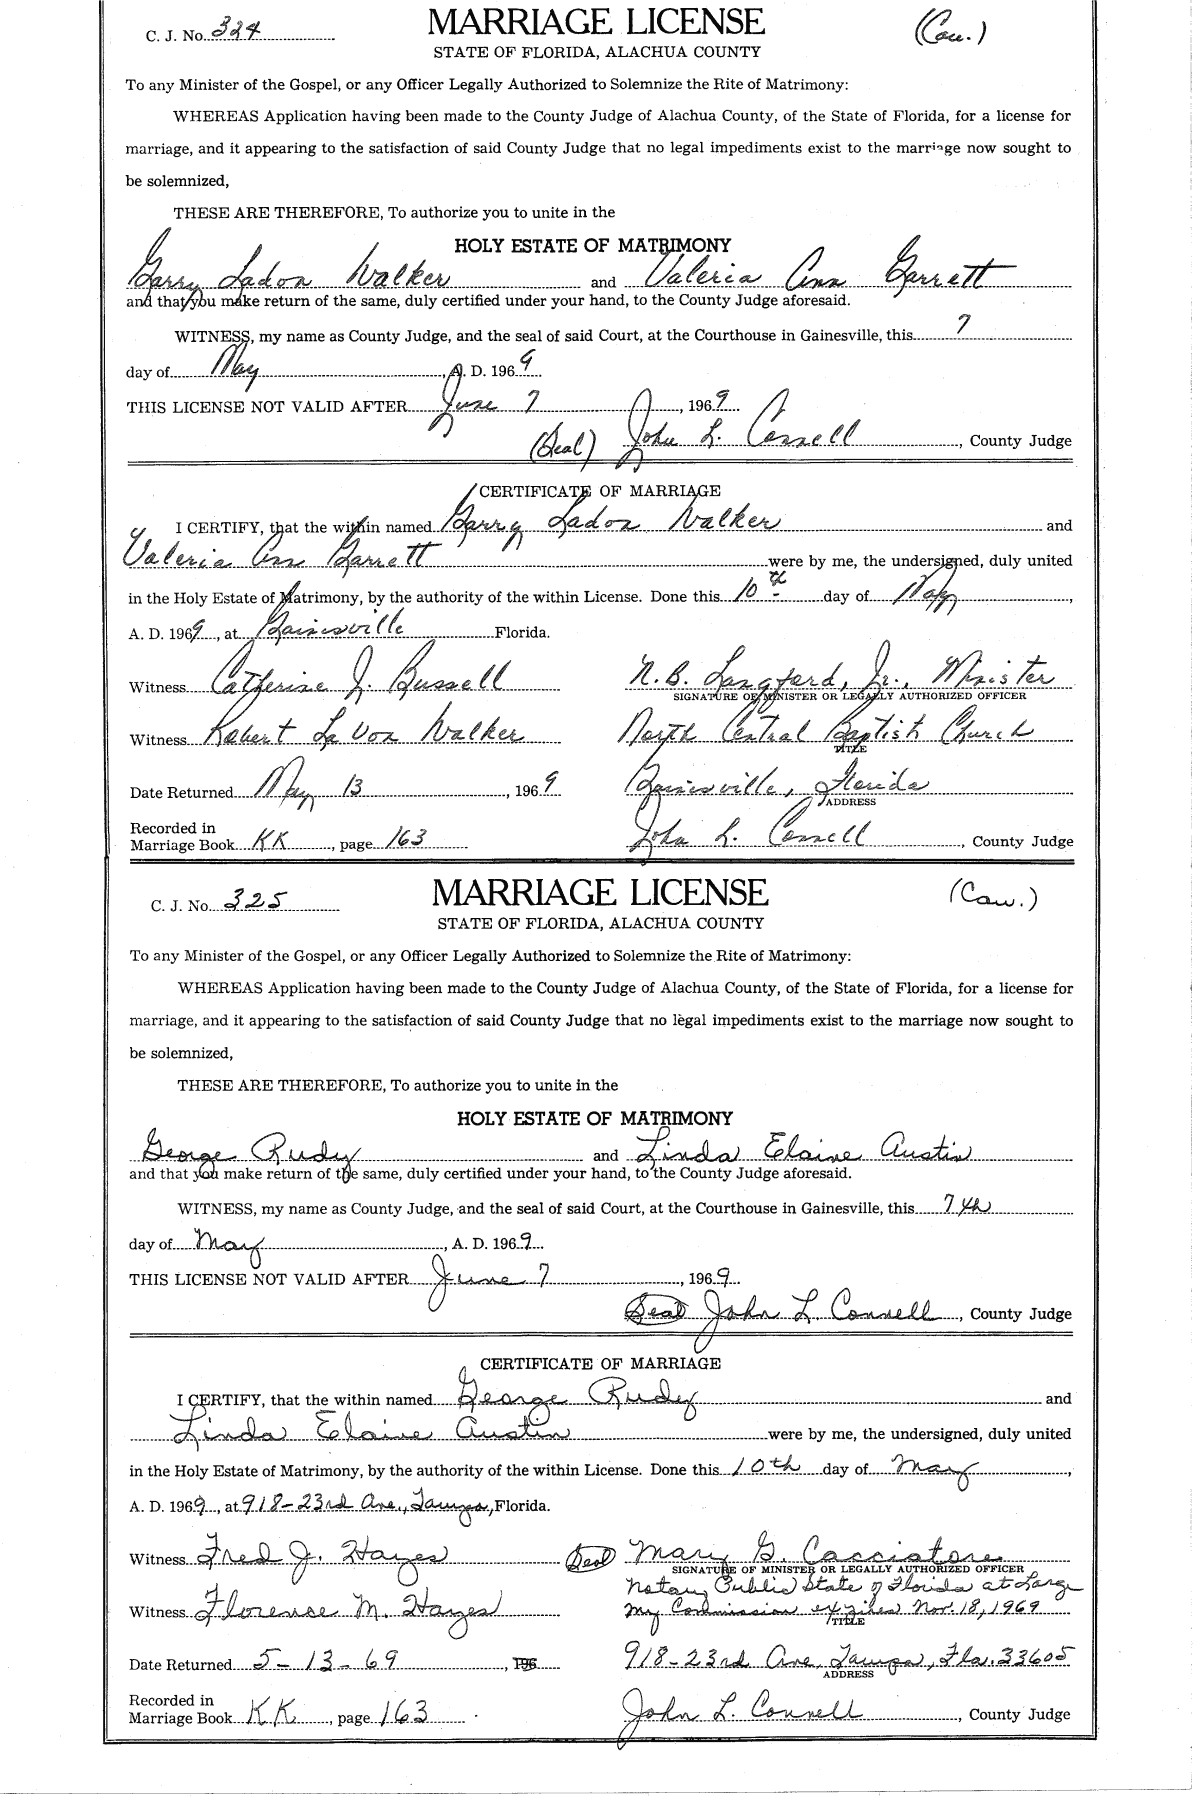 C. J. No. 324 MARRIAGE LICENSE (Cau.)
STATE OF FLORIDA, ALACHUA COUNTY
To any Minister of the Gospel, or any Officer Legally Authorized to Solemnize the Rite of Matrimony:
WHEREAS Application having been made to the County Judge of Alachua County, of the State of Florida, for a license for
marriage, and it appearing to the satisfaction of said County Judge that no legal impediments exist to the marriage now sought to
be solemnized,
THESE ARE THEREFORE, To authorize you to unite in the
HOLY ESTATE OF MATRIMONY
Garry Ladon Walker and Valeria Ann Garrett
and that you make return of the same, duly certified under your hand, to the County Judge aforesaid.
WITNESS, my name as County Judge, and the seal of said Court, at the Courthouse in Gainesville, this 7
day of May, A. D. 1969
THIS LICENSE NOT VALID AFTER June 7, 1969
(Seal) John L. Connell, County Judge
CERTIFICATE OF MARRIAGE
I CERTIFY, that the within named Garry Ladon Walker and
Valeria Ann Garrett were by me, the undersigned, duly united
in the Holy Estate of Matrimony, by the authority of the within License. Done this 10th day of May,
A. D. 1969, at Gainesville Florida.
Witness Catherine J. Bussell N. B. Langford, Jr., Minister
SIGNATURE OF MINISTER OR LEGALLY AUTHORIZED OFFICER
Witness Robert La Von Walker North Central Baptist Church
TITLE
Date Returned May 13, 1969 Gainesville, Florida
ADDRESS
Recorded in
Marriage Book KK, page 163 John L. Connell, County Judge
C. J. No. 325 MARRIAGE LICENSE (Cau.)
STATE OF FLORIDA, ALACHUA COUNTY
To any Minister of the Gospel, or any Officer Legally Authorized to Solemnize the Rite of Matrimony:
WHEREAS Application having been made to the County Judge of Alachua County, of the State of Florida, for a license for
marriage, and it appearing to the satisfaction of said County Judge that no legal impediments exist to the marriage now sought to
be solemnized,
THESE ARE THEREFORE, To authorize you to unite in the
HOLY ESTATE OF MATRIMONY
George Rudy and Linda Elaine Austin
and that you make return of the same, duly certified under your hand, to the County Judge aforesaid.
WITNESS, my name as County Judge, and the seal of said Court, at the Courthouse in Gainesville, this 7th
day of May, A. D. 1969
THIS LICENSE NOT VALID AFTER June 7, 1969
(Seal) John L. Connell, County Judge
CERTIFICATE OF MARRIAGE
I CERTIFY, that the within named George Rudy and
Linda Elaine Austin were by me, the undersigned, duly united
in the Holy Estate of Matrimony, by the authority of the within License. Done this 10th day of May,
A. D. 1969, at 918-23rd Ave., Tampa, Florida.
Witness Fred J. Hayes (Seal) Mary G. Cacciatore
SIGNATURE OF MINISTER OR LEGALLY AUTHORIZED OFFICER
Notary Public State of Florida at Large
Witness Florense M. Hayes My Commission expires Nov. 18, 1969
TITLE
Date Returned 5-13-69, 196 918-23rd Ave, Tampa, Fla. 33605
ADDRESS
Recorded in
Marriage Book KK, page 163 John L. Connell, County Judge